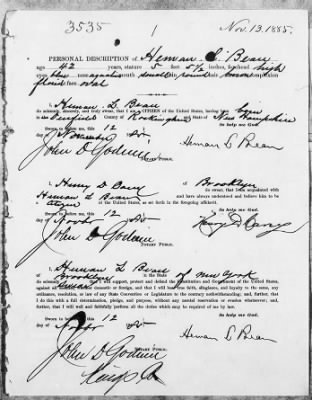 3535
Nov. 13. 1885.
PERSONAL DESCRIPTION of Heman L. Bean
age 42 years, stature 5 feet 5½ inches, forehead high
eyes blue nose mouth small chin round hair brown complexion
florid face oval
I, Heman L Bean
do solemnly, sincerely, and truly swear, that I am a CITIZEN of the United States, having been born
in Deerfield County of Rockingham State of New Hampshire
So help me God.
Sworn to before me, this 12
day of November 1885
Heman L Bean
John D Godwin
NOTARY PUBLIC.
I, Henry D of Brooklyn
do swear, that I am acquainted with
Heman L Bean and have always understood and believe him to be
a citizen of the United States, as set forth in the foregoing affidavit.
So help me God.
Sworn to before me, this 12
day of 1885
John D Godwin
NOTARY PUBLIC.
I, Heman L Bean
of Brooklyn in the State of New York
do swear that I will support, protect and defend the Constitution and Government of the United States,
against all enemies, whether domestic or foreign, and that I will bear true faith, allegiance, and loyalty to the same, any
ordinance, resolution, or law of any State Convention or Legislature to the contrary notwithstanding; and, further, that
I do this with a full determination, pledge, and purpose, without any mental reservation or evasion whatsoever; and,
further, that I will well and faithfully perform all the duties which may be required of me by law.
So help me God.
Sworn to before me, this 12
day of 1885
Heman L Bean
John D Godwin
NOTARY PUBLIC.
Kings Co